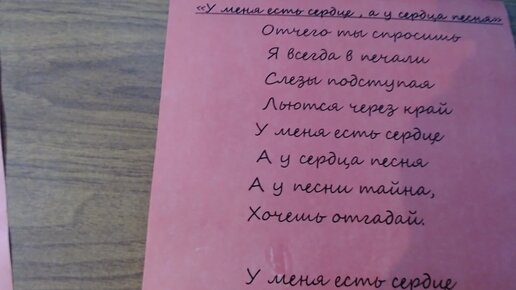 «У меня есть сердце , а у сердца песня»
Отчего ты спросишь
Я всегда в печали
Слезы подступая
Льются через край
У меня есть сердце
А у сердца песня
А у песни тайна,
Хочешь отгадай.
У меня есть сердце